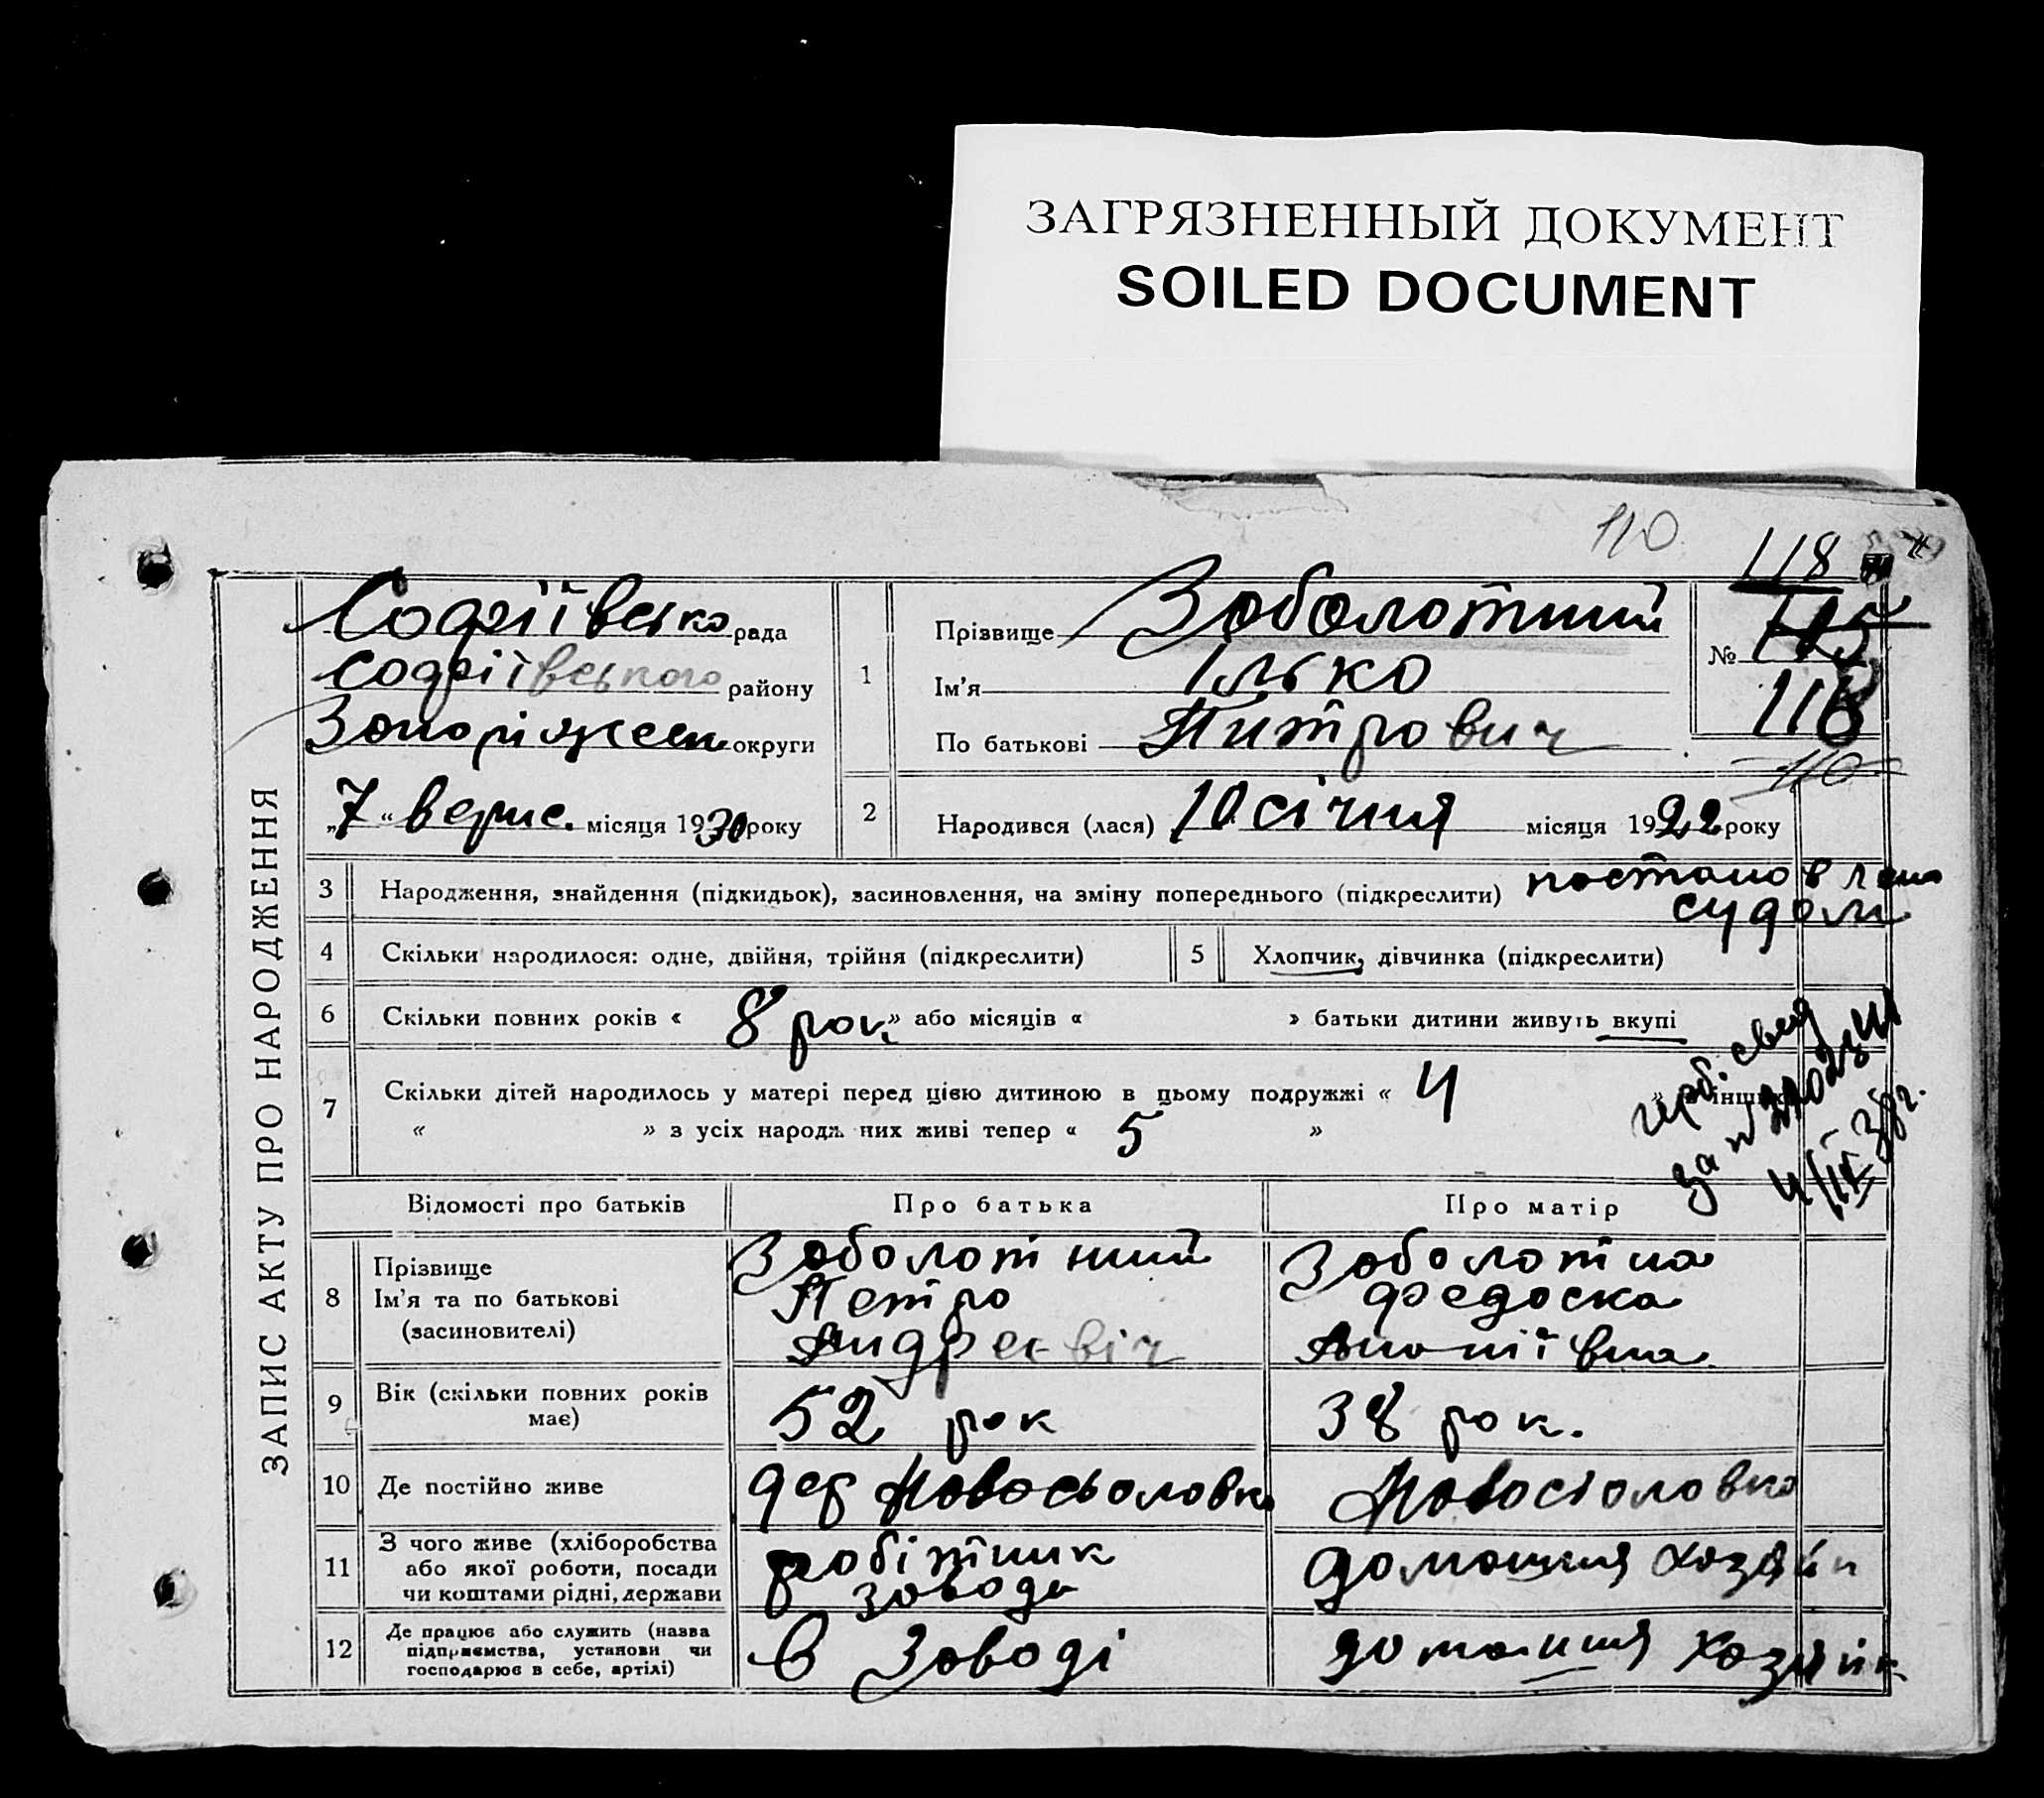 ЗАГРЯЗНЕННЫЙ ДОКУМЕНТ
SOILED DOCUMENT
110
118
ЗАПИС АКТУ ПРО НАРОДЖЕННЯ
Софіївсько рада
Софіївського району
округи
„7“ верис. місяця 1930 року
1
Прізвище Заболотний
Ім'я Ілько
По батькові Питрович
№ 115
116
110
2 Народився (лася) 10 січня місяця 1922 року
3 Народження, знайдення (підкидьок), засиновлення, на зміну попереднього (підкреслити) постановлено
судом
4 Скільки народилося: одне, двійня, трійня (підкреслити)
5 Хлопчик, дівчинка (підкреслити)
6 Скільки повних років « 8 рок » або місяців « » батьки дитини живуть вкупі
7 Скільки дітей народилось у матері перед цією дитиною в цьому подружжі « 4 » в інших
« » з усіх народж них живі тепер « 5 »
Відомості про батьків
Про батька
Про матір
8
Прізвище
Ім'я та по батькові
(засиновителі)
Заболотний
Петро
Андреєвіч
Заболотна
Федоска
9
Вік (скільки повних років
має)
52 рок
38 рок.
10
Де постійно живе
дер Новосьоловк
Новосіоловка
11
З чого живе (хліборобства
або якої роботи, посади
чи коштами рідні, держави
робітник
завода
домашня хозяйк
12
Де працює або служить (назва
підприємства, установи чи
господарює в себе, артілі)
в Заводі
домашня хозяйк